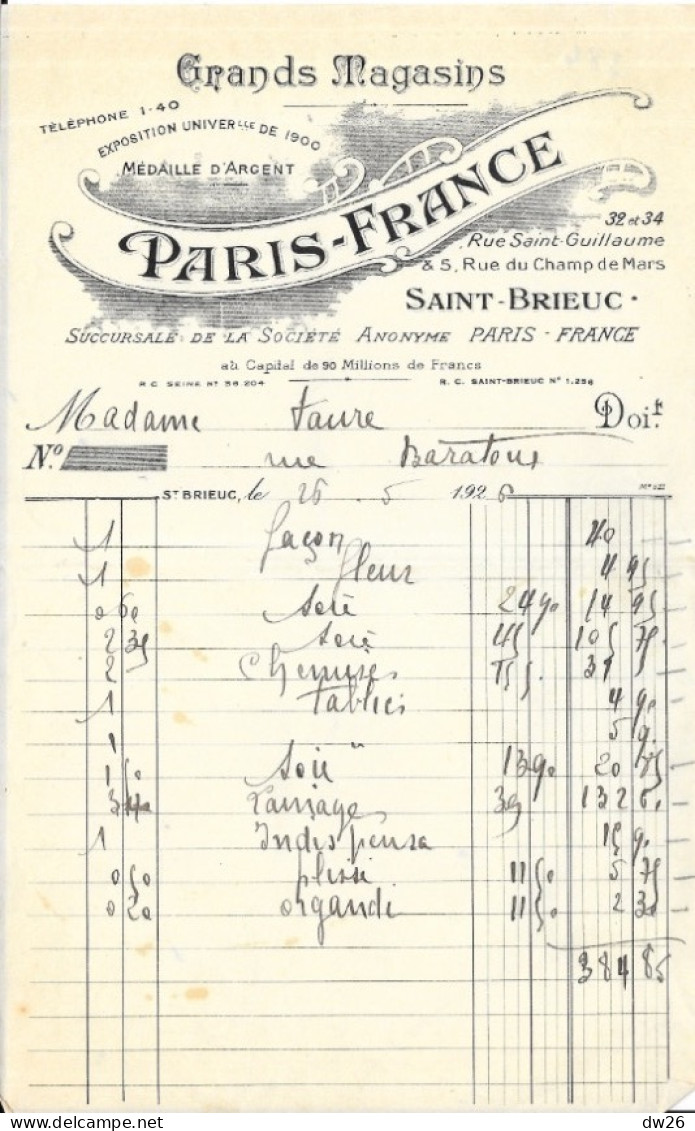 Grands Magasins
TÉLÉPHONE 1-40
EXPOSITION UNIVERlle DE 1900
MÉDAILLE D'ARGENT
PARIS-FRANCE
32 et 34
Rue Saint-Guillaume
& 5, Rue du Champ de Mars
SAINT-BRIEUC
SUCCURSALE DE LA SOCIÉTÉ ANONYME PARIS-FRANCE
au Capital de 90 Millions de Francs
R.C. SEINE Nº 36.204 R.C. SAINT-BRIEUC Nº 1.256
Madame Faure Doit
Nº rue Baratoux
ST BRIEUC, le 26 5 1926
1 façon 40
1 fleur 4 95
0 60 soie 24 90 14 95
2 35 soie 45 105 75
2 Chemises 31
1 tablier 4 90
1 " 5 90
1 50 soie 13 90 20 85
3 40 39 132 60
1 15 90
0 50 plissé 11 50 5 75
0 20 organdi 11 50 2 30
384 85
dw26